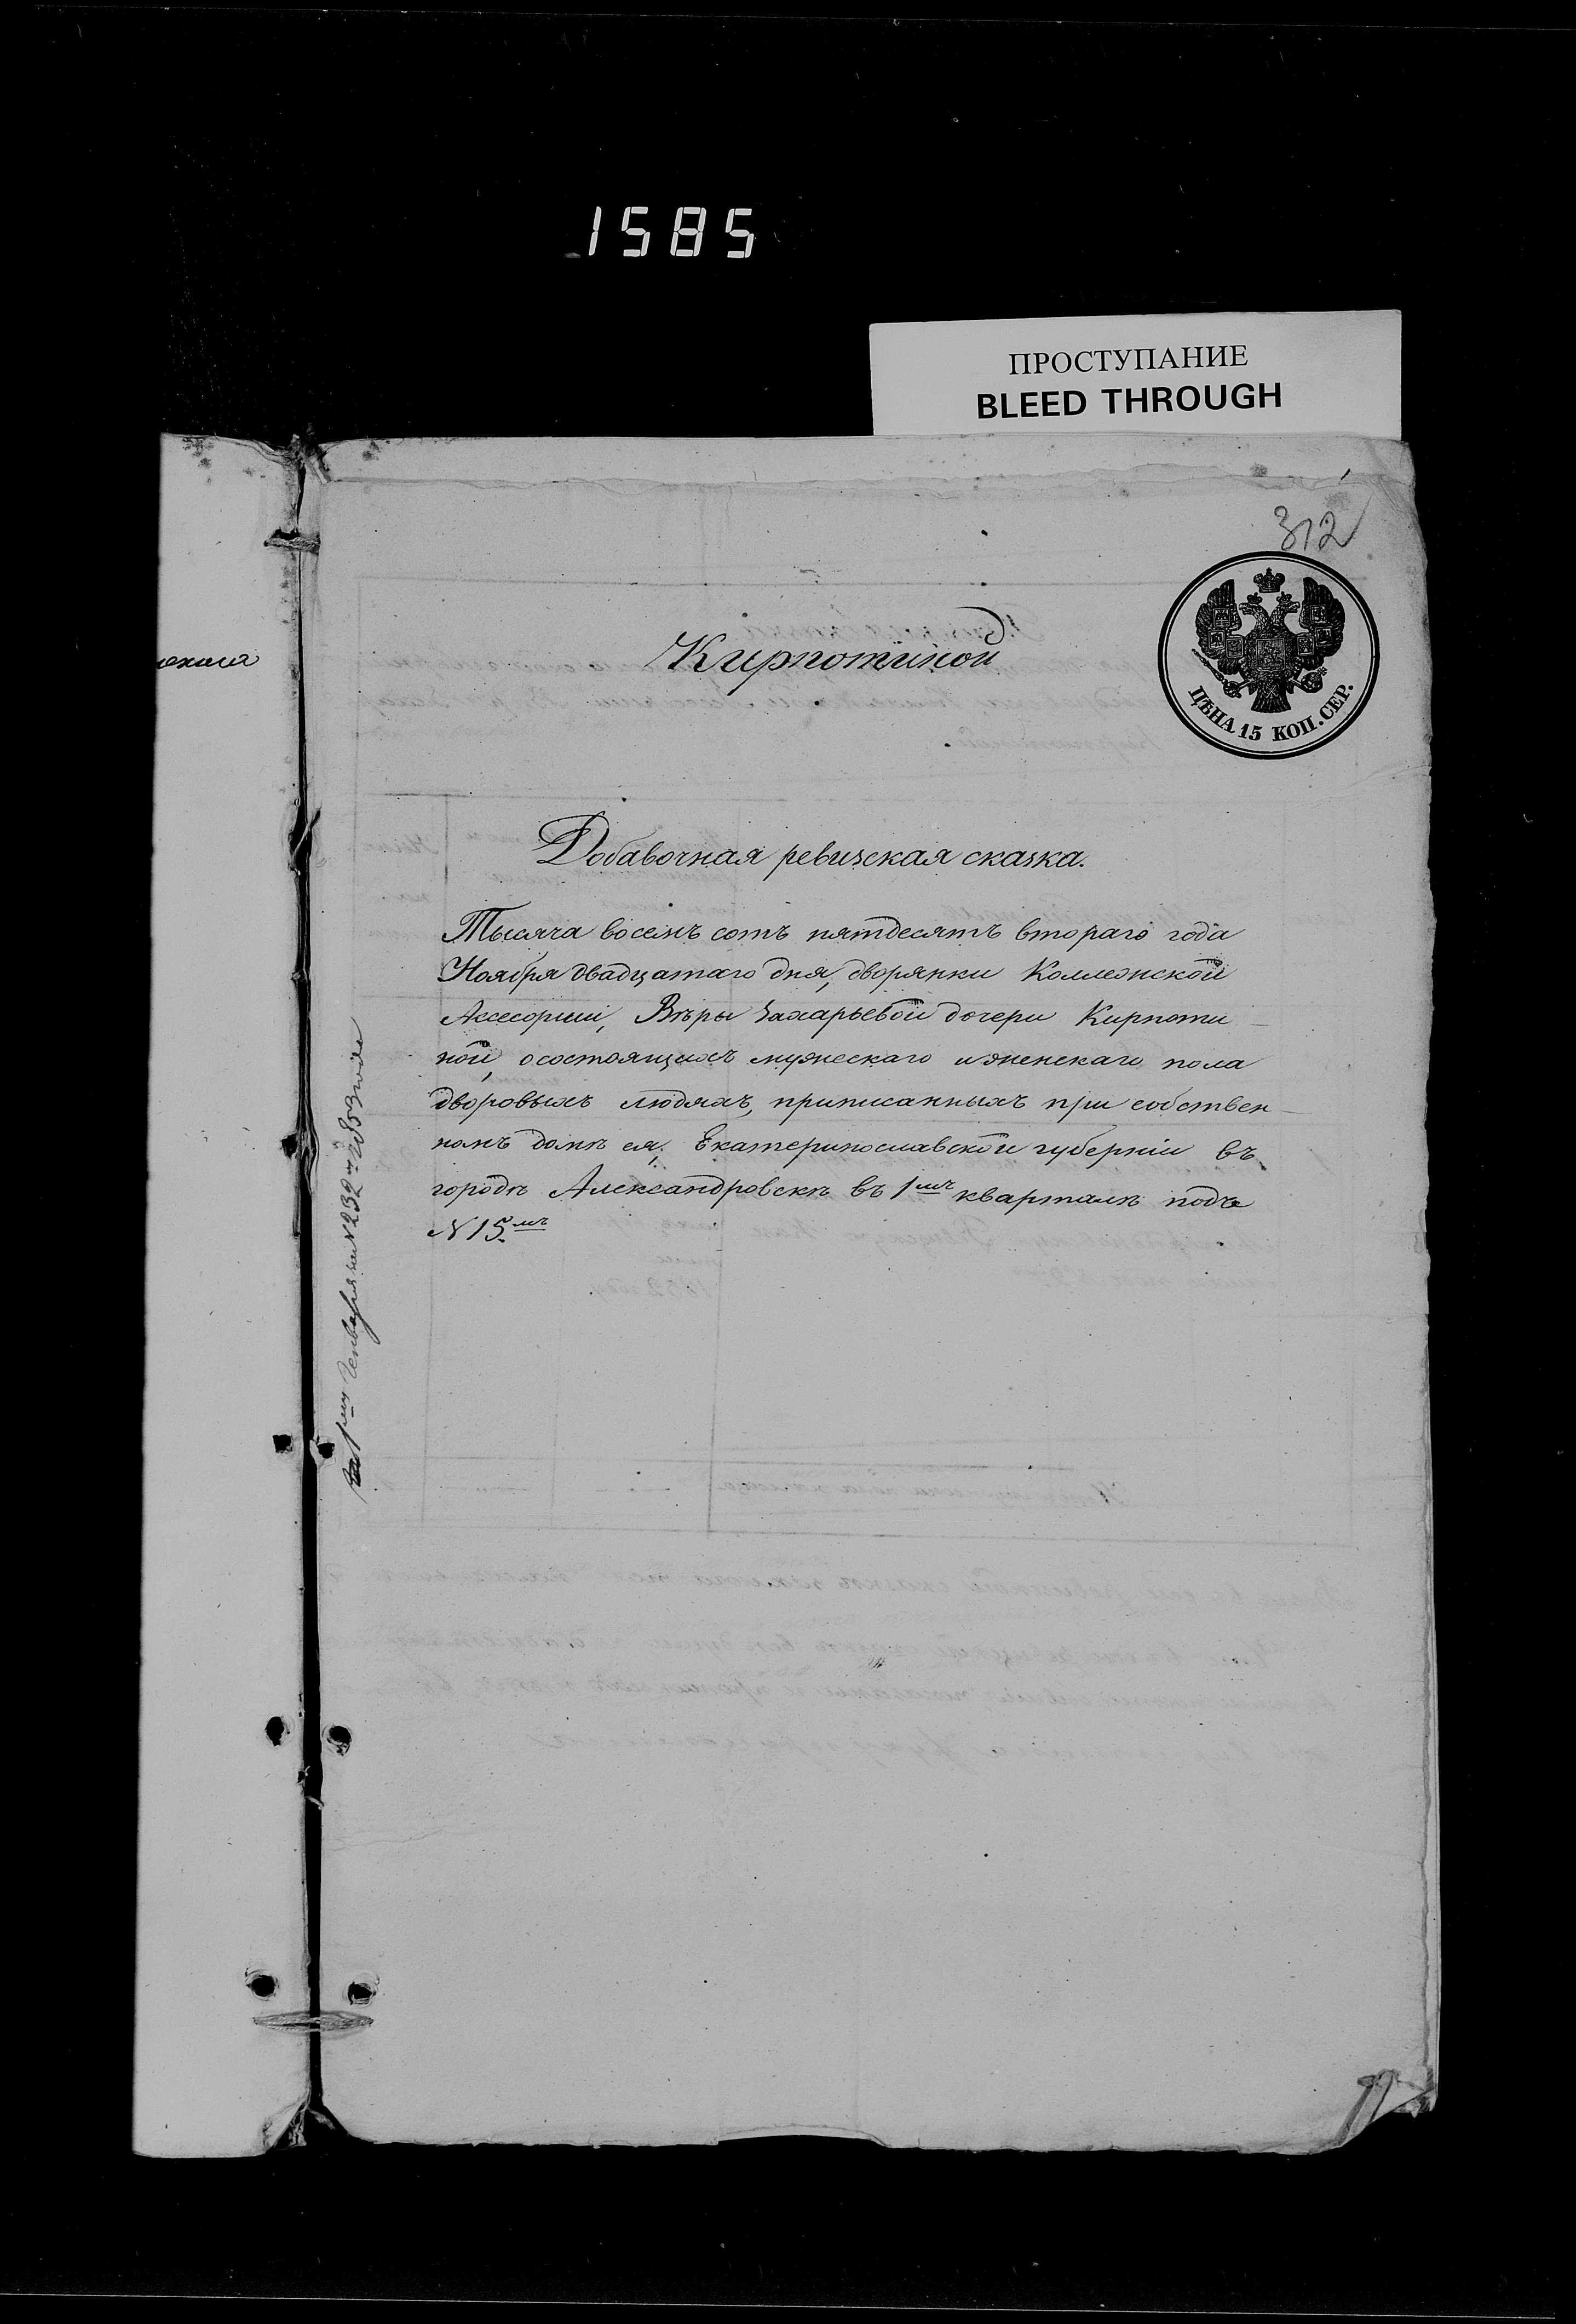 1585
ПРОСТУПАНИЕ
BLEED THROUGH
312
Кирпотиной
ЦѢНА 15 КОП. СЕР.
Добавочная ревизская сказка.
Тысяча восемь сотъ пятдесятъ втораго года
Ноября двадцатаго дня, дворянки Коллежской
Ассесорши, Вѣры Захарьевой дочери Кирпоти-
ной, о состоящихъ мужескаго и женскаго пола
дворовыхъ людяхъ, приписанныхъ при собствен-
номъ домѣ ея, Екатеринославской губерніи въ
городѣ Александровскѣ въ 1мъ кварталѣ подъ
N 15.мъ
Генваря на N 232 1853 года